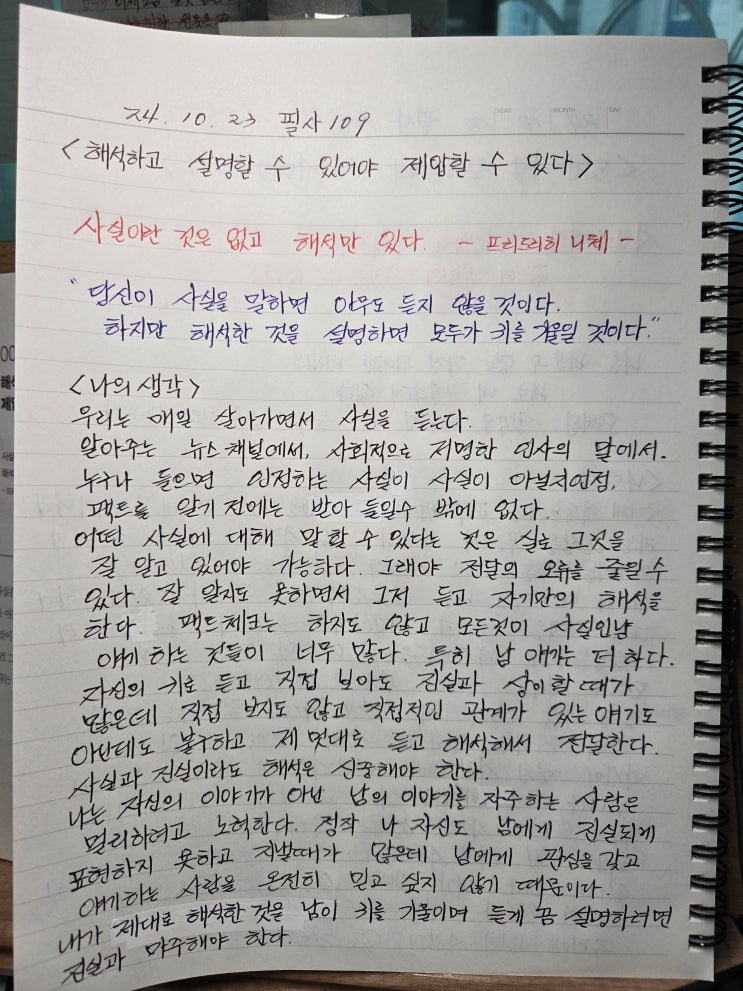 24. 10. 23 필사 109
YEAR MONTH DAY
<해석하고 설명할 수 있어야 제압할 수 있다>
사실이란 것은 없고 해석만 있다. - 프리드리히 니체 -
"당신이 사실을 말하면 아무도 듣지 않을 것이다.
하지만 해석한 것을 설명하면 모두가 귀를 기울일 것이다."
<나의 생각>
우리는 매일 살아가면서 사실을 듣는다.
알아주는 뉴스채널에서, 사회적으로 저명한 인사의 말에서.
누구나 들으면 인정하는 사실이 사실이 아닐지언정.
팩트를 알기 전에는 받아 들일수 밖에 없다.
어떤 사실에 대해 말할 수 있다는 것은 실로 그것을
잘 알고 있어야 가능하다. 그래야 전달의 오류를 줄일 수
있다. 잘 알지도 못하면서 그저 듣고 자기만의 해석을
한다. 팩트체크는 하지도 않고 모든것이 사실인냥
얘기 하는 것들이 너무 많다. 특히 남 얘기는 더 하다.
자신의 귀로 듣고 직접 보아도 진실과 상이할 때가
많은데 직접 보지도 않고 직접적인 관계가 있는 얘기도
아닌데도 불구하고 제 멋대로 듣고 해석해서 전달한다.
사실과 진실이라도 해석은 신중해야 한다.
나는 자신의 이야기가 아닌 남의 이야기를 자주하는 사람은
멀리하려고 노력한다. 정작 나 자신도 남에게 진실되게
표현하지 못하고 지낼때가 많은데 남에게 관심을 갖고
얘기하는 사람을 온전히 믿고 싶지 않기 때문이다.
내가 제대로 해석한 것을 남이 귀를 기울이며 듣게 끔 설명하려면
진실과 마주해야 한다.